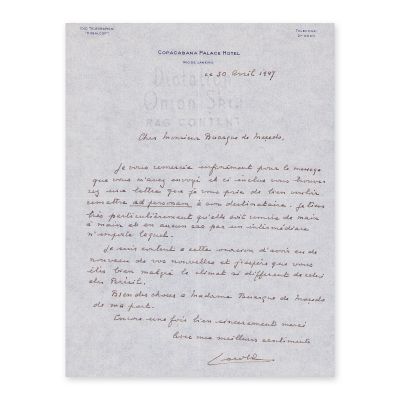 COPACABANA PALACE HOTEL
RIO DE JANEIRO
Dictation
Onion Skin
RAG CONTENT
ce 30 Avril 1947
Cher Monsieur Buarque de Macedo,
Je vous remercie infiniment pour le message
que vous m'avez envoyé et ci inclus vous trouve-
rez une lettre que je vous prie de bien vouloir
remettre ad personam à son destinataire. Je tiens
très particulièrement qu'elle soit remise de main
à main et en aucun cas par un intermédiaire
n'importe lequel.
Je suis content à cette occasion d'avoir eu de
nouveau de vos nouvelles et j'espère que vous
êtes bien malgré le climat si différent de celui
du Brésil.
Bien des choses à Madame Buarque de Macedo
de ma part.
Encore une fois bien sincèrement merci
Avec mes meilleurs sentiments